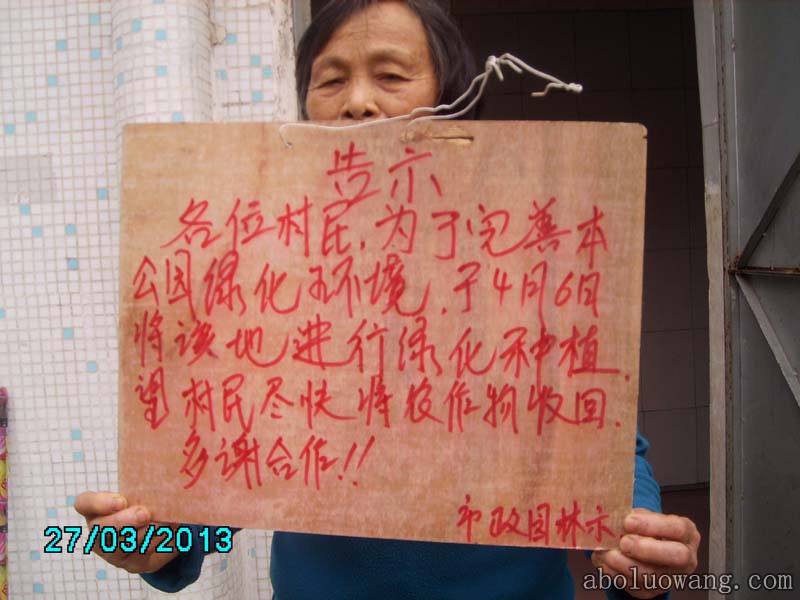 告示
各位村民,为了完善本
公园绿化环境,于4月6日
将该地进行绿化种植.
望村民尽快将农作物收回.
多谢合作!!
市政园林示
27/03/2013
aboluowang.com